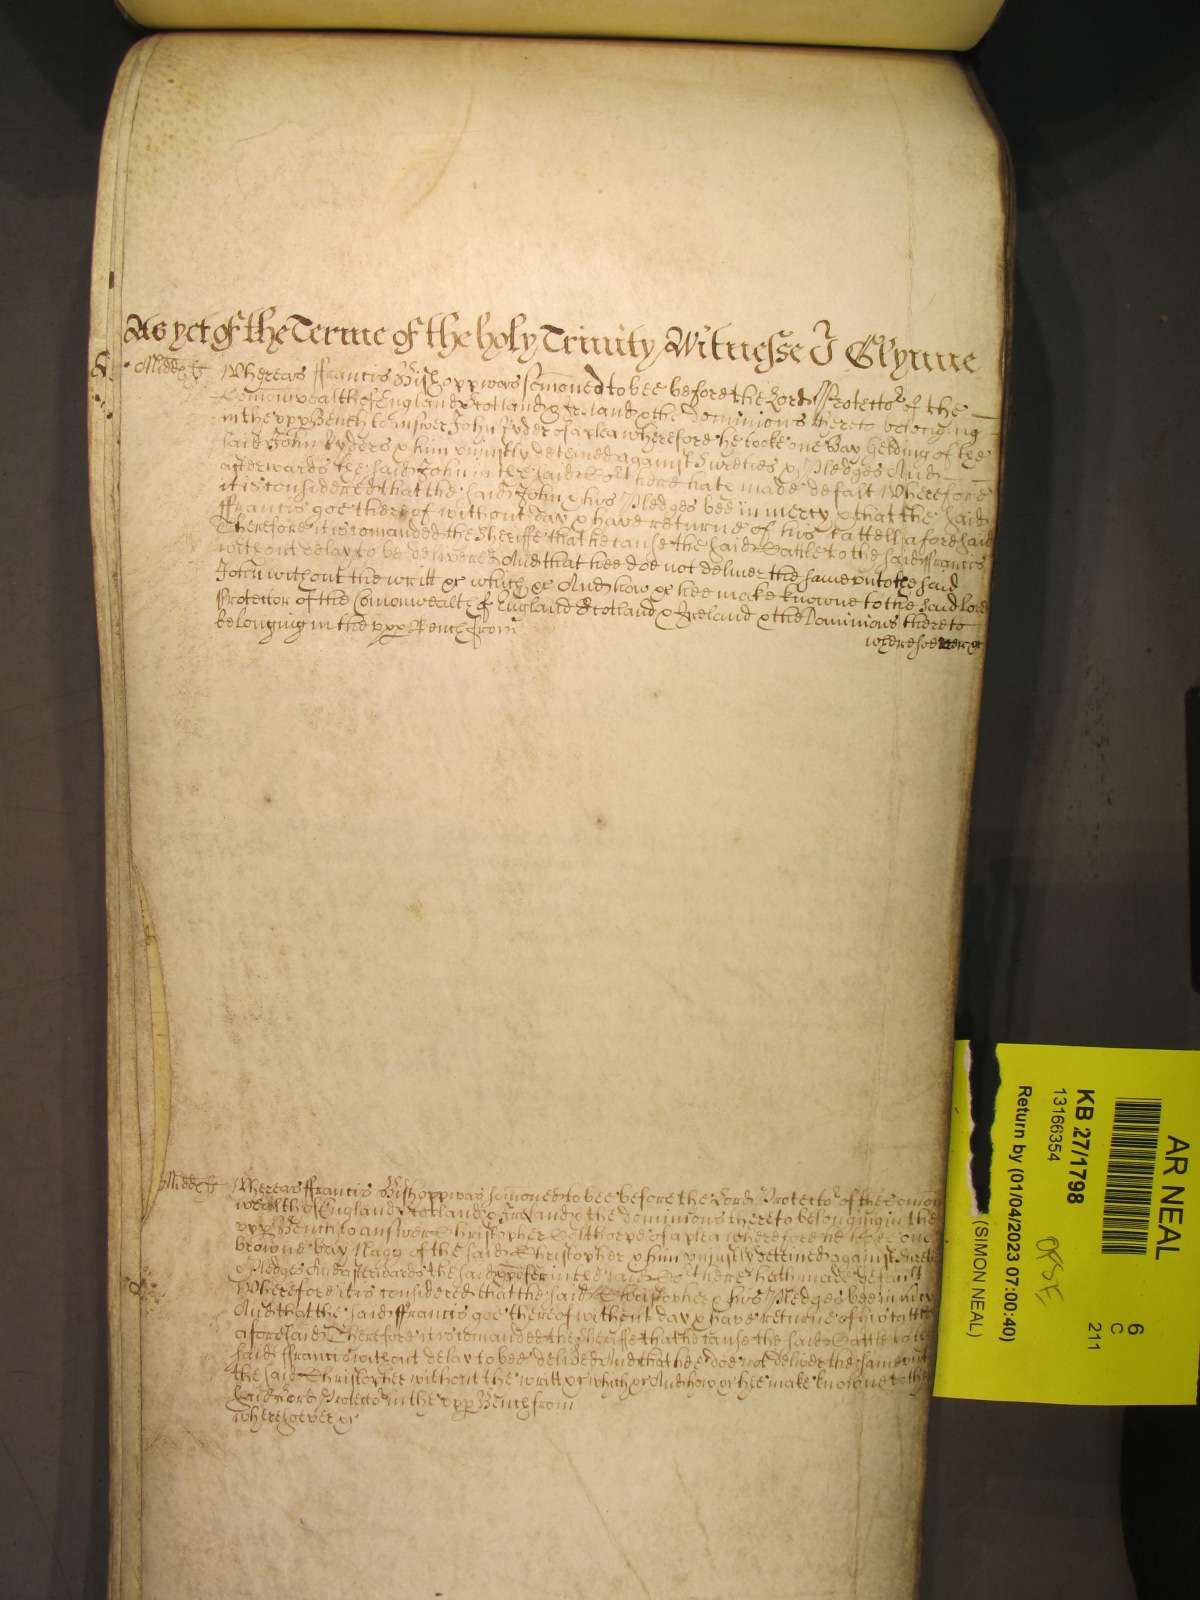 As yet of the Terme of the holy Trinity Witnesse J Glynne
Midds Whereas ffrancis Bishopp was somoned to bee before the Lord Protector of the
Comonwealth of England Scotland & Ireland & the dominions thereto belonging
in the upp Bench to answer John Ryders of a plea wherefore he tooke one Bay Gelding of the
said John Ryders & him uniustly deteined against Sureties & Pledges And
afterwards the said John in the said Cort here hath made defalt Wherefore
it is considered that the said John & his Pledges bee in mercy & that the said
ffrancis goe thereof without day & have returne of his cattell aforesaid
Therefore it is comanded the Sheriffe that he cause the said Cattle to the said ffrancis
without delay to be delivered And that hee doe not deliver the same unto the said
John without the writt &c which &c And how &c hee make knowne to the said Lord
Protector of the Comonwealth of England Scotland & Ireland & the Dominions thereto
belonging in the upp Bench from
wheresoever &c
Midds Whereas ffrancis Bishopp was somoned to bee before the Lord Protector of the Comon
wealth of England Scotland & Ireland & the dominions thereto belonging in the
upp Bench to answer Christopher Calthorpe of a plea wherefore he tooke one
browne bay Nagg of the said Christopher & him uniustly deteined against Sureties
& Pledges And afterwards the said Christopher in the said Cort here hath made default
Wherefore it is considered that the said Christopher & his Pledges bee in mercy
And that the said ffrancis goe thereof without day & have returne of his cattle
aforesaid Therefore it is comanded the Sheriffe that he cause the said Cattle to the
said ffrancis without delay to bee delivered And that hee doe not deliver the same unto
the said Christopher without the writt &c which &c And how &c hee make knowne to the
said Lord Protector in the upp Bench from
wheresoever &c
AR NEAL
6
C
211
KB 27/1798
13166354
Return by (01/04/2023 07:00:40)
(SIMON NEAL)